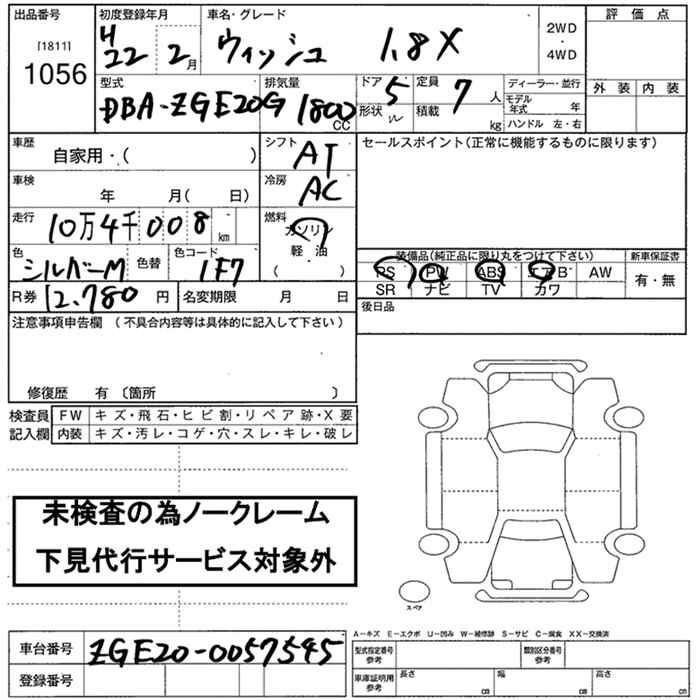 出品番号 初度登録年月 車名・グレード 評価点
[1811]
1056
H22 2月 ウィッシュ 1.8X 2WD・4WD
外装 内装
型式 排気量 ドア 定員 ディーラー・並行
DBA-ZGE20G 1800CC 5 7人 モデル年式 年
形状 積載 kg ハンドル 左・右
車歴 シフト セールスポイント(正常に機能するものに限ります)
自家用・( ) AT
車検 冷房
年 月( 日) AC
走行 燃料
10万4千008km ガソリン
軽・油
( )
色 色替 色コード 装備品(純正品に限り丸をつけて下さい) 新車保証書
シルバーM 1F7 PS PW ABS エアB AW 有・無
SR ナビ TV カワ
R券 12,780円 名変期限 月 日 後日品
注意事項申告欄 (不具合内容等は具体的に記入して下さい)
修復歴 有 〔箇所 〕
検査員 FW キズ・飛石・ヒビ割・リペア跡・X要
記入欄 内装 キズ・汚レ・コゲ・穴・スレ・キレ・破レ
未検査の為ノークレーム
下見代行サービス対象外
スペア
A-キズ E-エクボ U-凹み W-補修跡 S-サビ C-腐食 XX-交換済
車台番号 ZGE20-0057545
型式指定番号 参考 類別区分番号 参考
登録番号
車庫証明用 参考 長さ cm 幅 cm 高さ cm